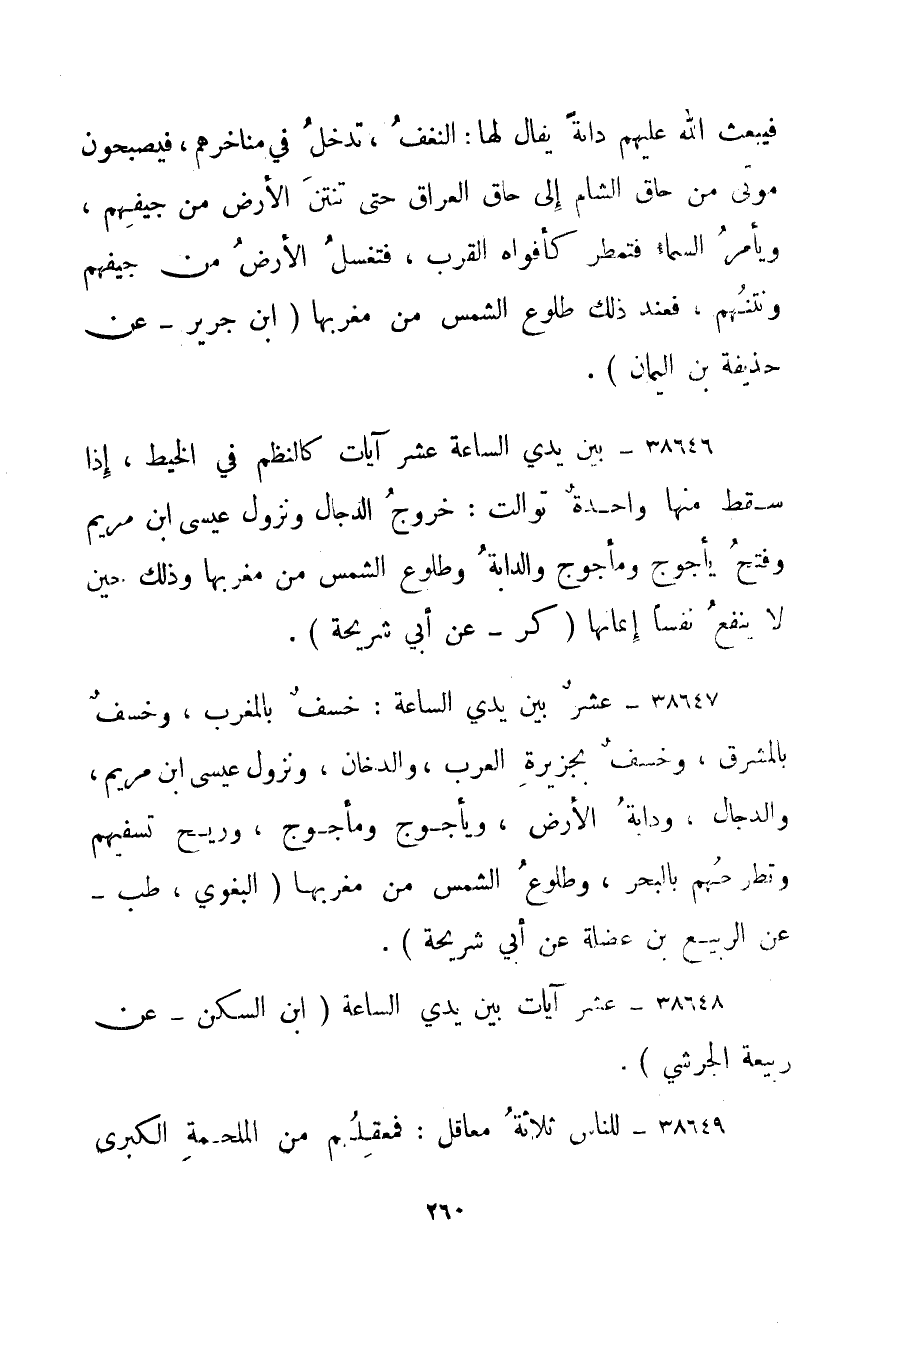 فيبعث الله عليهم دابةً يقال لها : النغفُ ، تدخلُ في مناخرهم ، فيصبحون
موتى من حاق الشام إلى حاق العراق حتى تنتنَ الأرض من جيفهم ،
ويأمرُ السماء فتمطر كأفواه القرب ، فتغسلُ الأرضُ من جيفهم
ونتنُهم ، فعند ذلك طلوع الشمس من مغربها ( ابن جرير - عن
حذيفة بن اليمان ) .
٣٨٦٤٦ - بين يدي الساعة عشر آيات كالنظم في الخيط ، إذا
سقط منها واحدةٌ توالت : خروجُ الدجال ونزول عيسى ابن مريم
وفتحُ يأجوج ومأجوج والدابةُ وطلوع الشمس من مغربها وذلك حين
لا ينفعُ نفساً إيمانها ( كر - عن أبي شريحة ) .
٣٨٦٤٧ - عشرٌ بين يدي الساعة : خسفٌ بالمغرب ، وخسفٌ
بالمشرق ، وخسفٌ بجزيرةِ العرب ، والدخان ، ونزول عيسى ابن مريم ،
والدجال ، ودابةُ الأرض ، ويأجوج ومأجوج ، وريح تسفيهم
وتطرحُهم بالبحر ، وطلوعُ الشمس من مغربها ( البغوي ، طب -
عن الربيع بن عضلة عن أبي شريحة ) .
٣٨٦٤٨ - عشر آيات بين يدي الساعة ( ابن السكن - عن
ربيعة الجرشي ) .
٣٨٦٤٩ - للناس ثلاثةُ معاقل : فمعقِلُهم من الملحمةِ الكبرى
٢٦٠